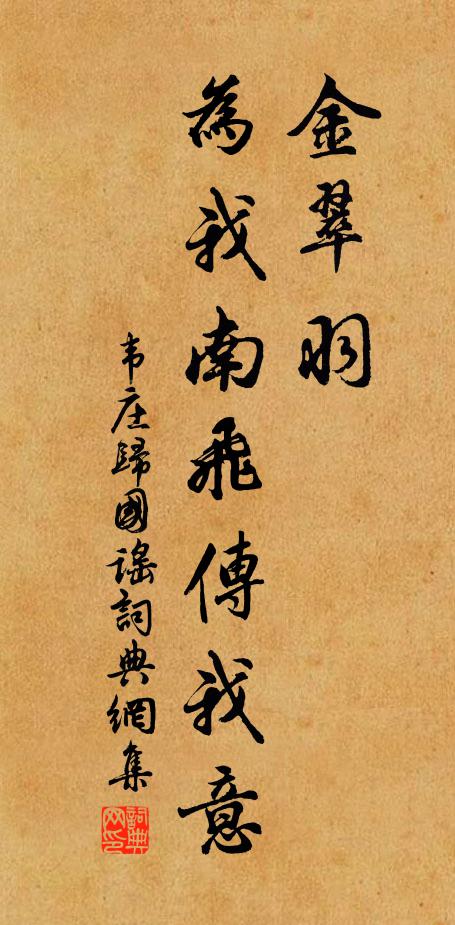 金翠羽
為我南飛傳我意
韦庄歸國謠詞典網集
詞典網印